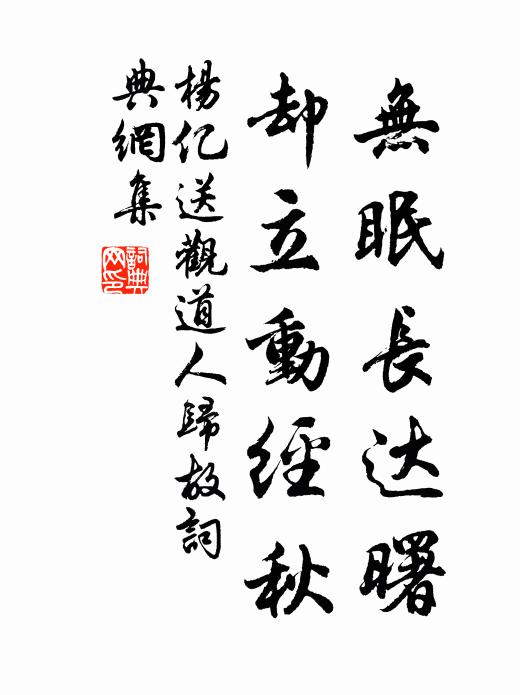 無眠長达曙
却立動經秋
楊亿送觀道人歸故詞
典網集
詞典
网印